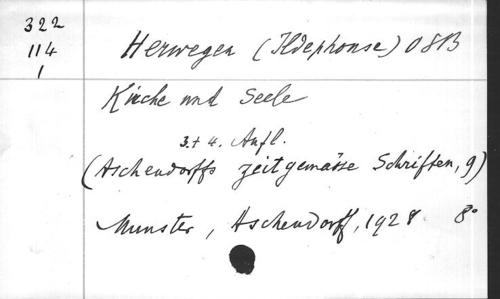 322
114
1
Herwegen (Ildephonse) OSB
Kirche und Seele
3.+ 4. Aufl.
(Aschendorffs zeitgemässe Schriften, 9)
Munster, Aschendorff, 1928 8°